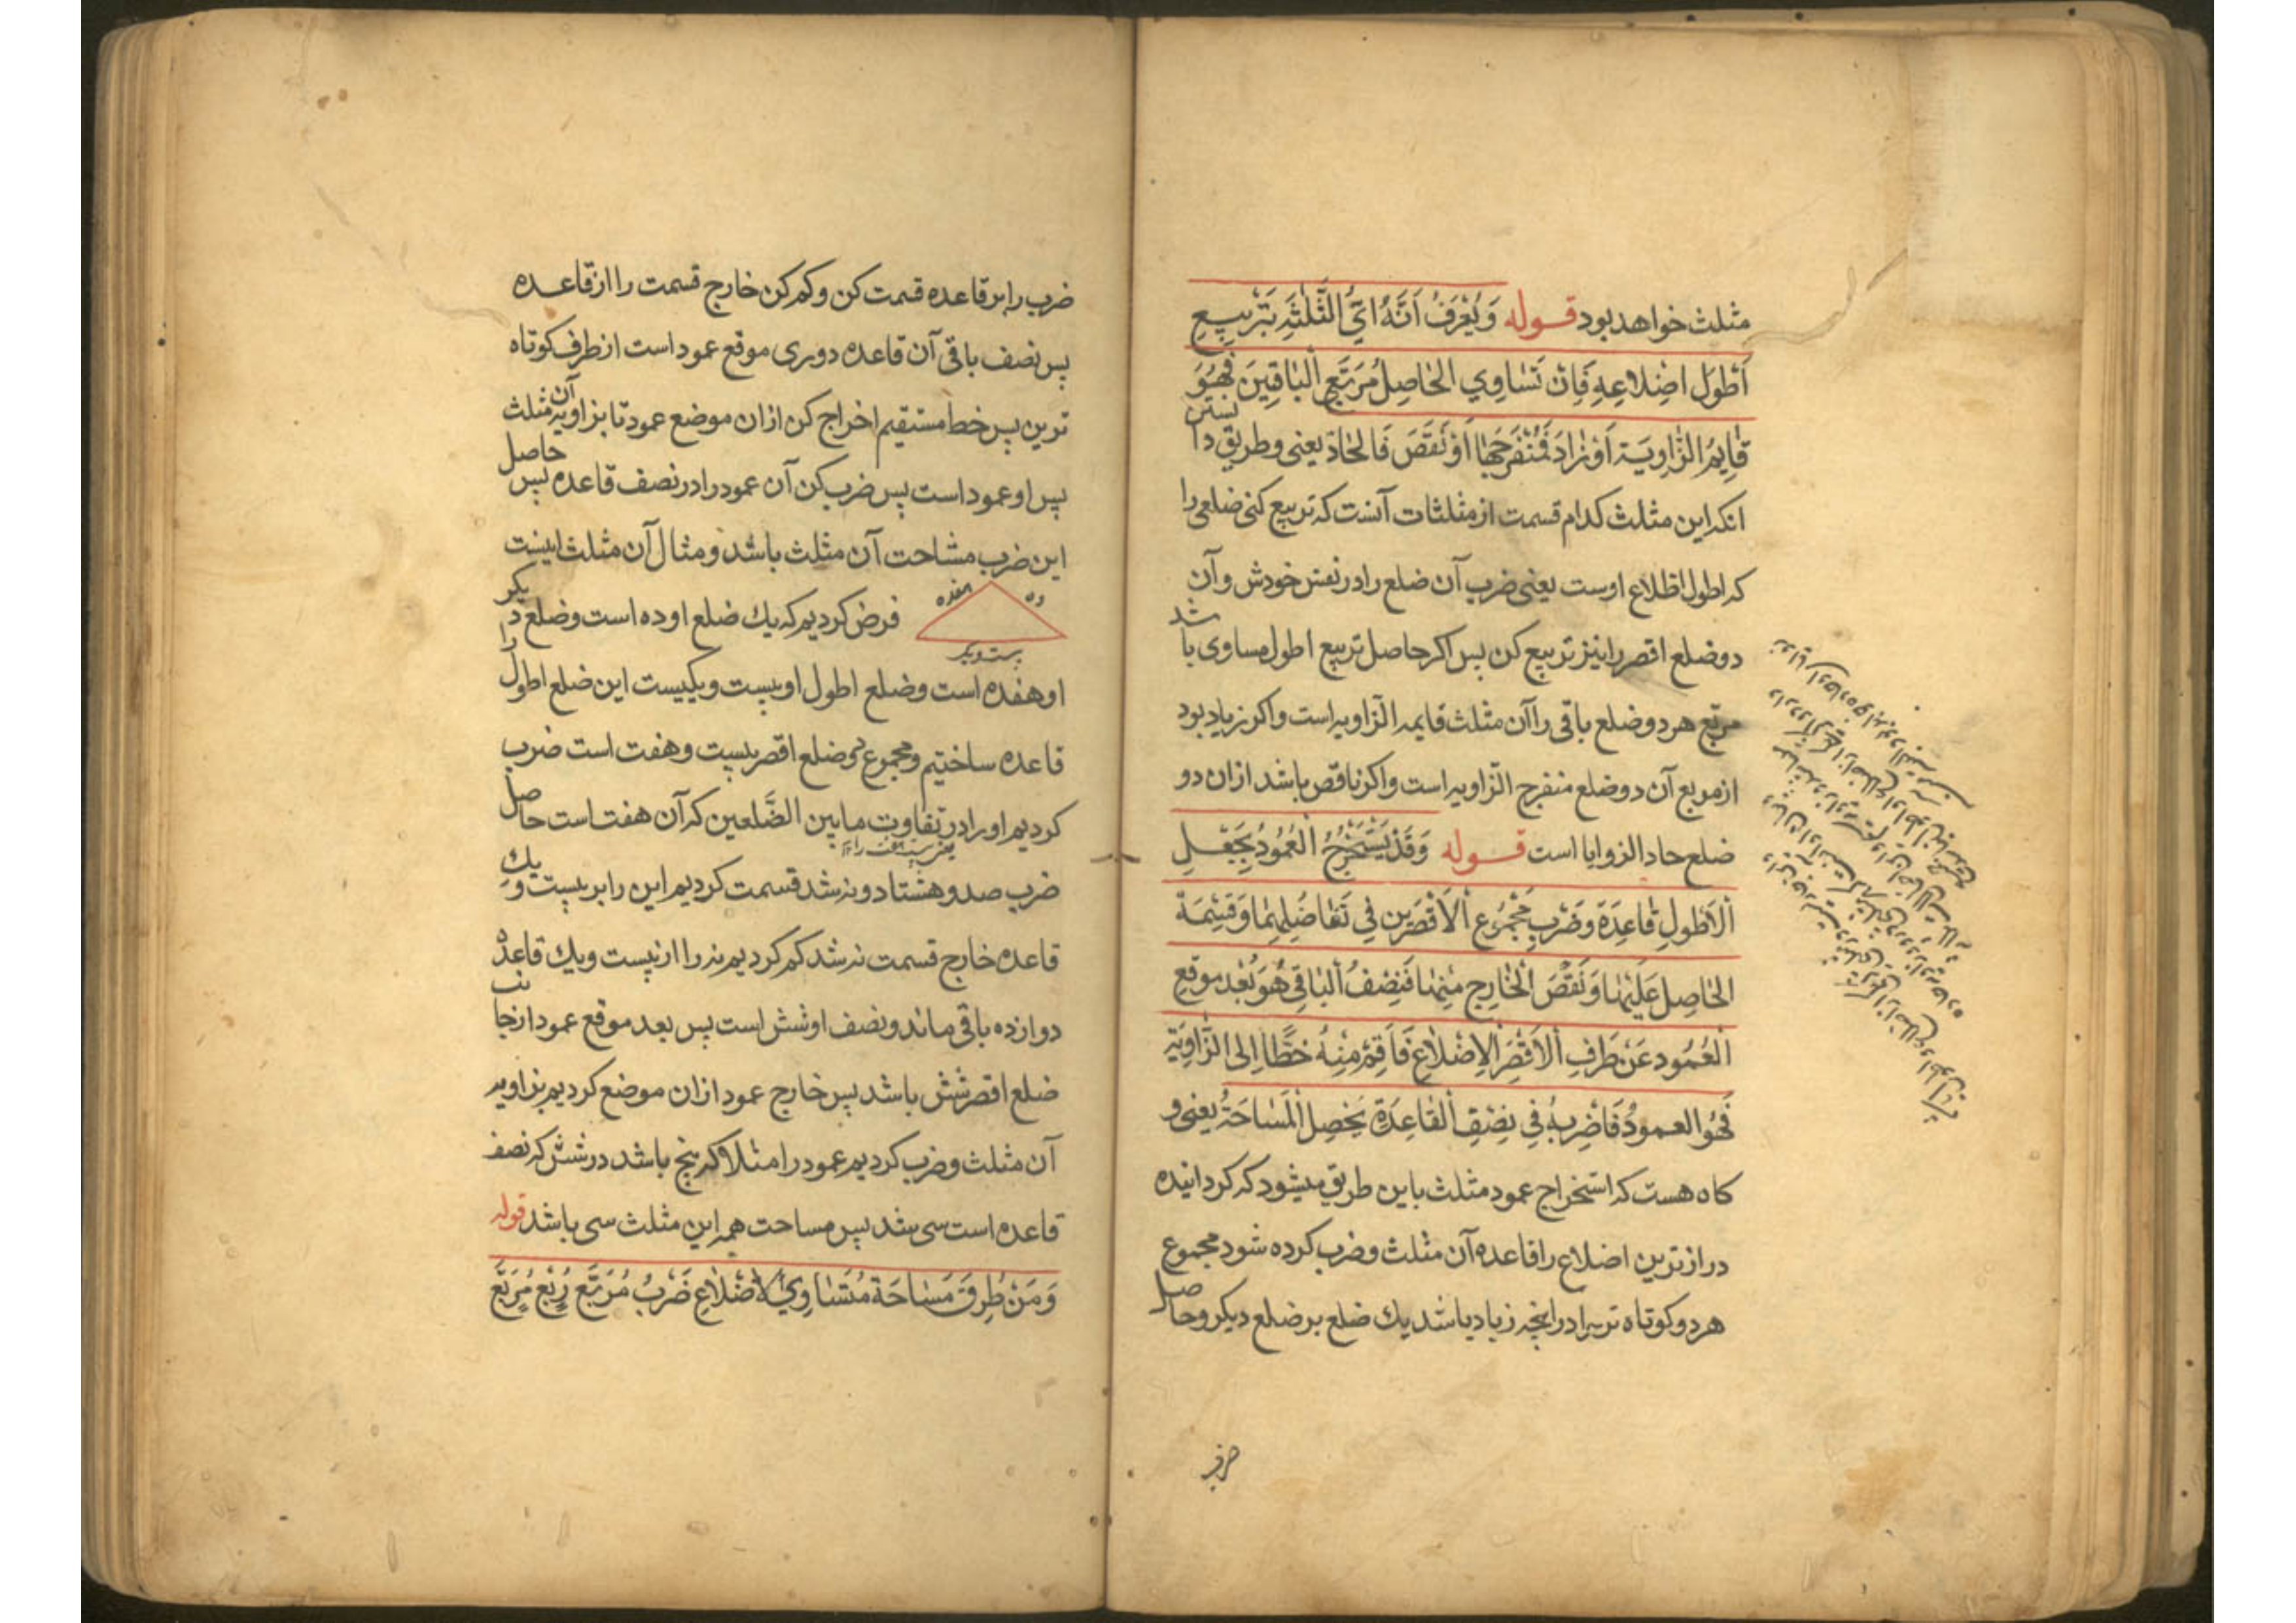 مثلث خواهد بود قوله وَيُعْرَفُ اَنَّهُ اَيُّ الثَّلٰثَةِ بَتَرْبيعِ
اَطْوَل اضلاعِهِ فَاِنْ تَسٰاوِي الحٰاصِلُ مُرَبَّعِ الْبٰاقِيَيْنَ فَهِيُوَ
قٰايِمُ الزّٰاوِيَة اَوْ زٰادَ فَمُنْفَرِجَهٰا اَوْ نَقَصَ فَالحٰادّ يعنى وطريق دا نستن
انكه اين مثلث كدام قسمت از مثلثات آنست كه تربيع كنى ضلعى را
كه اطول اظلاع اوست يعنى ضرب آن ضلع را در نفس خودش و آن
دو ضلع اقصر را نيز تربيع كن پس اكر حاصل تربيع اطول مساوى با شد
مربّع هر دو ضلع باقى را آن مثلث قايمه الزاويه است واكر زياد بود
از مربع آن دو ضلع منفرج الزّاويه است واكر ناقص باشد ازان دو
ضلع حاد الزوايا است قوله وَقَدْ يَسْتَخْرِجُ الْعَمُودُ بِجَعْلِ
اَلْاَطْولِ قٰاعِدَة وَضَرْبِ مَجْمُوعِ الْاَقْصَرَيْنِ فِي تَفٰاضُلِهِمٰا وَقِسْمَة
الحٰاصِلِ عَلَيْهٰا وَنَقْصَ الْخٰارِجِ مِنْهٰا فَنِصْفُ الْبٰاقِي هُوَ بُعْد مَوقِعِ
الْعَمُودِ عَنْ طَرَفِ الْاَقْصَرَ الاضْلاعِ فَاَقِمْ مِنْهُ خَطًّا اِلى الزّٰاوِيَة
فَهُوَ العمودُ فَاضْرِبهُ فِي نِصْفِ القٰاعِدَة يَحْصِل الْمَسٰاحَةُ يعنى و
كاه هست كه استخراج عمود مثلث باين طريق ميشود كه كردانيده
درازترين اضلاع را قاعده آن مثلث وضرب كرده شود مجموع
هر دو كوتاه تر را در انچه زياد باشد يك ضلع بر ضلع ديكر وحا صل
ضرب را بر قاعده قسمت كن وكم كن خارج قسمت را از قاعده
پس نصف باقى آن قاعده دورى موقع عمود است از طرف كوتاه
ترين پس خط مستقيم اخراج كن ازان موضع عمود تا بزاويه آن مثلث
پس او عمود است پس ضرب كن آن عمود را در نصف قاعده پس حاصل
اين ضرب مشاحت آن مثلث باشد ومثال آن مثلث اينست
ده
هفده
بيست ويك
فرض كرديم كه يك ضلع او ده است وضلع د يكر
او هفده است وضلع اطول او بيست ويكيست اين ضلع اطول را
قاعده ساختيم ومجموع دو ضلع اقصر بيست وهفت است ضرب
كرديم او را در تفاوت ما بين الضّلعين كه آن هفت است حا صل
ضرب صد وهشتاد ونه شد قسمت كرديم اين را بر بيست و يك
قاعده خارج قسمت نه شد كم كرديم نه را از بيست ويك قاعده
دوازده باقى ماند ونصف او شش است پس بعد موقع عمود ازجا نب
ضلع اقصر شش باشد پس خارج عمود ازان موضع كرديم بزاويه
آن مثلث وضرب كرديم عمود را مثلا كه پنج باشد در شش كه نصف
قاعده است سى شد پس مساحت همه اين مثلث سى باشد قوله
وَمَنْ طُرِقَ مَسٰاحَة مُتَسٰاوِي الاضْلاعِ ضَرْبُ مُرَبَّعِ رُبْعِ مُرَبَّعِ